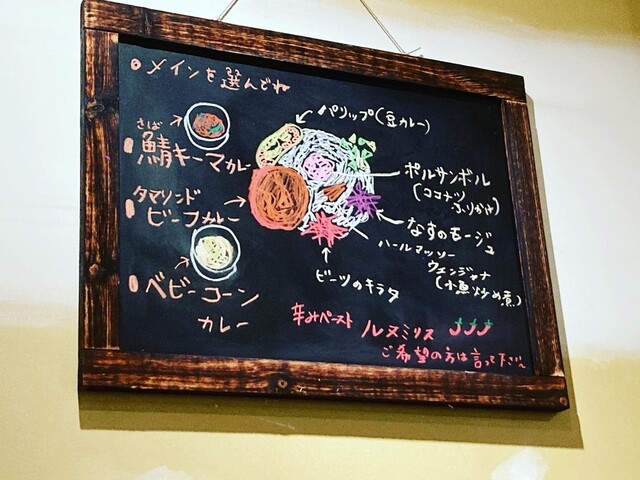 メインを選んでね
さば
鯖キーマカレー
タマリンド
ビーフカレー
ベビーコーン
カレー
パリップ(豆カレー)
ポルサンボル
(ココナツ
ふりかけ)
なすのモージュ
ハールマッソー
ウェンジャナ
(小魚炒め煮)
ビーツのキラタ
辛みペースト ルヌミリス
ご希望の方は言って下さい